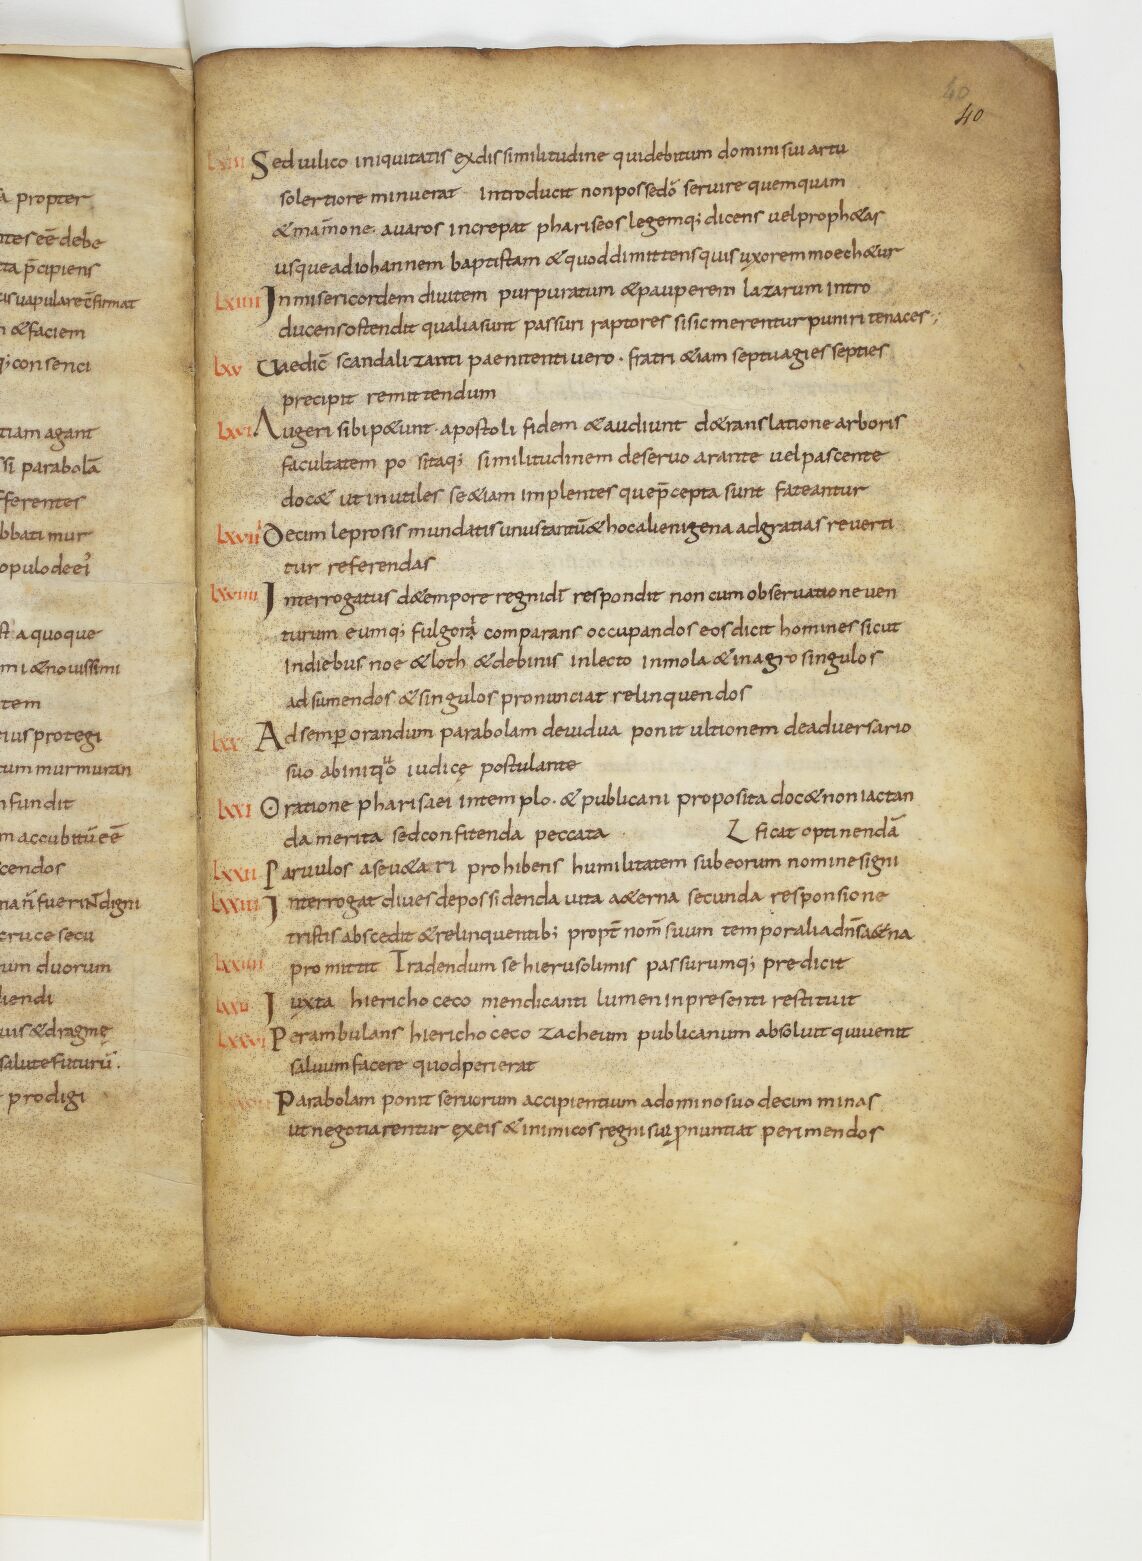 a propter
ntes eē debe
ta p̄cipiens
tis uapulare c̄firmat
n & faciem
q; consenci
tiam agant
si parabolā
fferentes
bbati mur
opulo dei
st a quoque
mi & nouissimi
tem
eius protegi
tum murmuran
nfundit
m accubitū eē
cendos
na n̄ fuerint digni
cruce secu
rum duorum
liendi
uis & dragmę
salute futurū.
prodigi
40
40
lxiii Sed uilico iniquitatis ex dissimilitudine qui debitum domini sui artu
solertiore minuerat introducit non posse dō seruire quemquam
& mam̄one. auaros increpat phariseos legemq; dicens uel proph&as
usque ad iohannem baptistam & quod dimittens quis uxorem moech&ur
lxiiii Inmisericordem diuitem purpuratum & pauperem lazarum intro
ducens ostendit qualia sunt passuri raptores si sic merentur puniri tenaces;
lxv Uae dic̄ scandalizanti paenitenti uero. fratri &iam septuagies septies
precipit remittendum
lxvi Augeri sibi p&unt. apostoli fidem & audiunt d& translatione arboris
facultatem po sitaq; similitudinem de seruo arante uel pascente
doc& ut inutiles se &iam implentes que p̄cepta sunt fateantur
lxvii Decim leprosis mundatis unus tantū & hoc alienigena ad gratias reuerti
tur referendas
lxviiii Interrogatus d& tempore regni dī respondit non cum obseruatione uen
turum eumq; fulgori comparans occupandos eos dicit homines sicut
in diebus noe & loth & de binis in lecto in mola & in agro singulos
adsumendos & singulos pronunciat relinquendos
lxx Ad semp orandum parabolam de uidua ponit ultionem de aduersario
suo ab iniquo iudicę postulante
lxxi Oratione pharisaei in templo. & publicani proposita doc& non iactan
da merita sed confitenda peccata
ficat optinendā
lxxii Paruulos a se u&ari prohibens humilitatem sub eorum nomine signi
lxxiii Interrogat diues de possidenda uita a&erna secunda responsione
tristis abscedit & relinquentib; propt̄ nom̄ suum temporalia dn̄s a&̄na
lxxiiii promittit Tradendum se hierusolimis passurumq; predicit
Iuxta hiericho ceco mendicanti lumen in presenti restituit
lxxvi Perambulans hiericho ceco zacheum publicanum absoluit qui uenit
saluum facere quod perierat
Parabolam ponit seruorum accipientium a domino suo decim minas
ut negotiarentur ex eis & inimicos regni sui p̱nuntiat perimendos